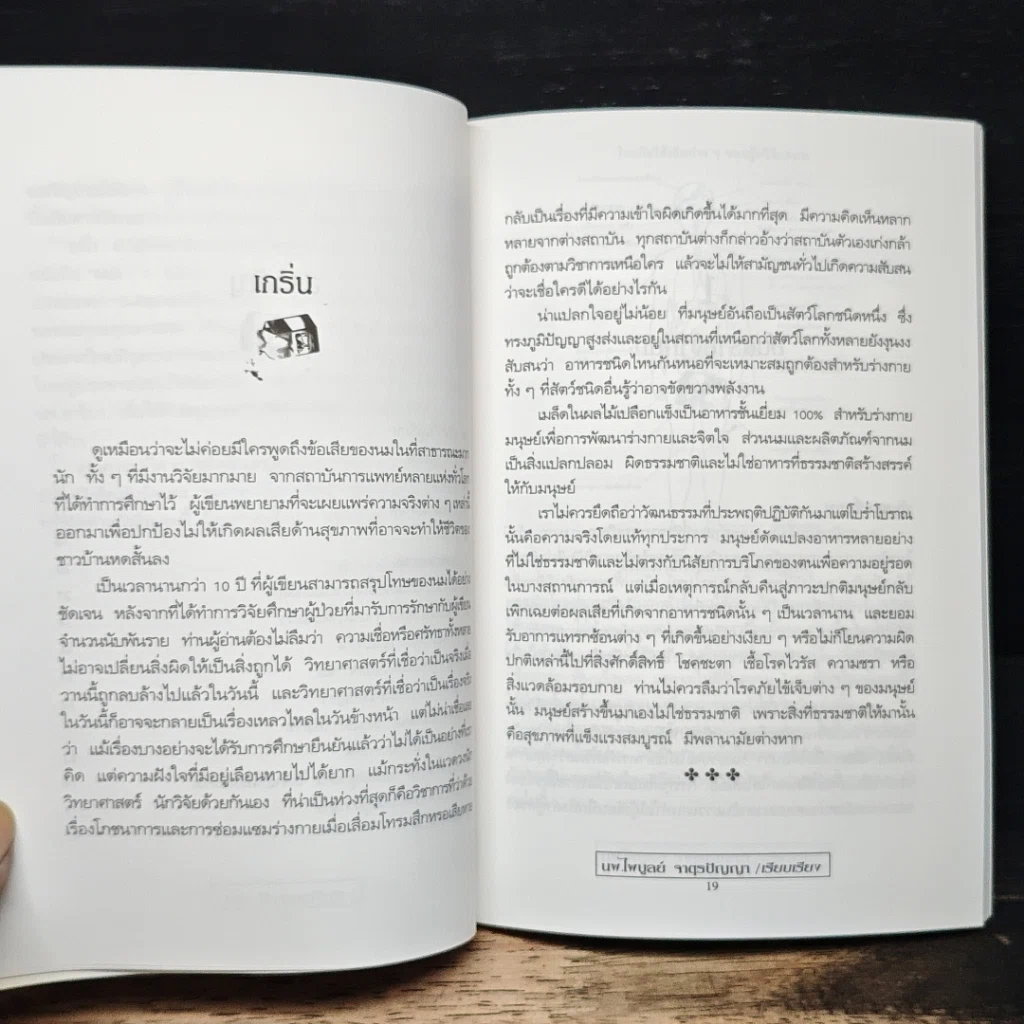 เกริ่น
ดูเหมือนว่าจะไม่ค่อยมีใครพูดถึงข้อเสียของนมในที่สาธารณะมาก
นัก ทั้ง ๆ ที่มีงานวิจัยมากมาย จากสถาบันการแพทย์หลายแห่งทั่วโลก
ที่ได้ทำการศึกษาไว้ ผู้เขียนพยายามที่จะเผยแพร่ความจริงต่าง ๆ เหล่านี้
ออกมาเพื่อปกป้องไม่ให้เกิดผลเสียด้านสุขภาพที่อาจจะทำให้ชีวิตของ
ชาวบ้านหดสั้นลง
เป็นเวลานานกว่า 10 ปี ที่ผู้เขียนสามารถสรุปโทษของนมได้อย่าง
ชัดเจน หลังจากที่ได้ทำการวิจัยศึกษาผู้ป่วยที่มารับการรักษากับผู้เขียน
จำนวนนับพันราย ท่านผู้อ่านต้องไม่ลืมว่า ความเชื่อหรือศรัทธาทั้งหลาย
ไม่อาจเปลี่ยนสิ่งผิดให้เป็นสิ่งถูกได้ วิทยาศาสตร์ที่เชื่อว่าเป็นจริงเมื่อ
วานนี้ถูกลบล้างไปแล้วในวันนี้ และวิทยาศาสตร์ที่เชื่อว่าเป็นเรื่องจริง
ในวันนี้ก็อาจจะกลายเป็นเรื่องเหลวไหลในวันข้างหน้า แต่ไม่น่าเชื่อเลย
ว่า แม้เรื่องบางอย่างจะได้รับการศึกษายืนยันแล้วว่าไม่ได้เป็นอย่างที่เรา
คิด แต่ความฝังใจที่มีอยู่เลือนหายไปได้ยาก แม้กระทั่งในแวดวงนัก
วิทยาศาสตร์ นักวิจัยด้วยกันเอง ที่น่าเป็นห่วงที่สุดก็คือวิชาการที่ว่าด้วย
เรื่องโภชนาการและการซ่อมแซมร่างกายเมื่อเสื่อมโทรมสึกหรอเสียหาย
กลับเป็นเรื่องที่มีความเข้าใจผิดเกิดขึ้นได้มากที่สุด มีความคิดเห็นหลาก
หลายจากต่างสถาบัน ทุกสถาบันต่างก็กล่าวอ้างว่าสถาบันตัวเองเก่งกล้า
ถูกต้องตามวิชาการเหนือใคร แล้วจะไม่ให้สามัญชนทั่วไปเกิดความสับสน
ว่าจะเชื่อใครดีได้อย่างไรกัน
น่าแปลกใจอยู่ไม่น้อย ที่มนุษย์อันถือเป็นสัตว์โลกชนิดหนึ่ง ซึ่ง
ทรงภูมิปัญญาสูงส่งและอยู่ในสถานที่เหนือกว่าสัตว์โลกทั้งหลายยังงุนงง
สับสนว่า อาหารชนิดไหนกันหนอที่จะเหมาะสมถูกต้องสำหรับร่างกาย
ทั้ง ๆ ที่สัตว์ชนิดอื่นรู้ว่าอาจขัดขวางพลังงาน
เมล็ดในผลไม้เปลือกแข็งเป็นอาหารชั้นเยี่ยม 100% สำหรับร่างกาย
มนุษย์เพื่อการพัฒนาร่างกายและจิตใจ ส่วนนมและผลิตภัณฑ์จากนม
เป็นสิ่งแปลกปลอม ผิดธรรมชาติและไม่ใช่อาหารที่ธรรมชาติสร้างสรรค์
ให้กับมนุษย์
เราไม่ควรยึดถือว่าวัฒนธรรมที่ประพฤติปฏิบัติกันมาแต่โบร่ำโบราณ
นั้นคือความจริงโดยแท้ทุกประการ มนุษย์ดัดแปลงอาหารหลายอย่าง
ที่ไม่ใช่ธรรมชาติและไม่ตรงกับนิสัยการบริโภคของตนเพื่อความอยู่รอด
ในบางสถานการณ์ แต่เมื่อเหตุการณ์กลับคืนสู่ภาวะปกติมนุษย์กลับ
เพิกเฉยต่อผลเสียที่เกิดจากอาหารชนิดนั้น ๆ เป็นเวลานาน และยอม
รับอาการแทรกซ้อนต่าง ๆ ที่เกิดขึ้นอย่างเงียบ ๆ หรือไม่ก็โยนความผิด
ปกติเหล่านี้ไปที่สิ่งศักดิ์สิทธิ์ โชคชะตา เชื้อโรคไวรัส ความชรา หรือ
สิ่งแวดล้อมรอบกาย ท่านไม่ควรลืมว่าโรคภัยไข้เจ็บต่าง ๆ ของมนุษย์
นั้น มนุษย์สร้างขึ้นมาเองไม่ใช่ธรรมชาติ เพราะสิ่งที่ธรรมชาติให้มานั้น
คือสุขภาพที่แข็งแรงสมบูรณ์ มีพลานามัยต่างหาก
นพ.ไพบูลย์ จาตุรปัญญา /เรียบเรียง
19